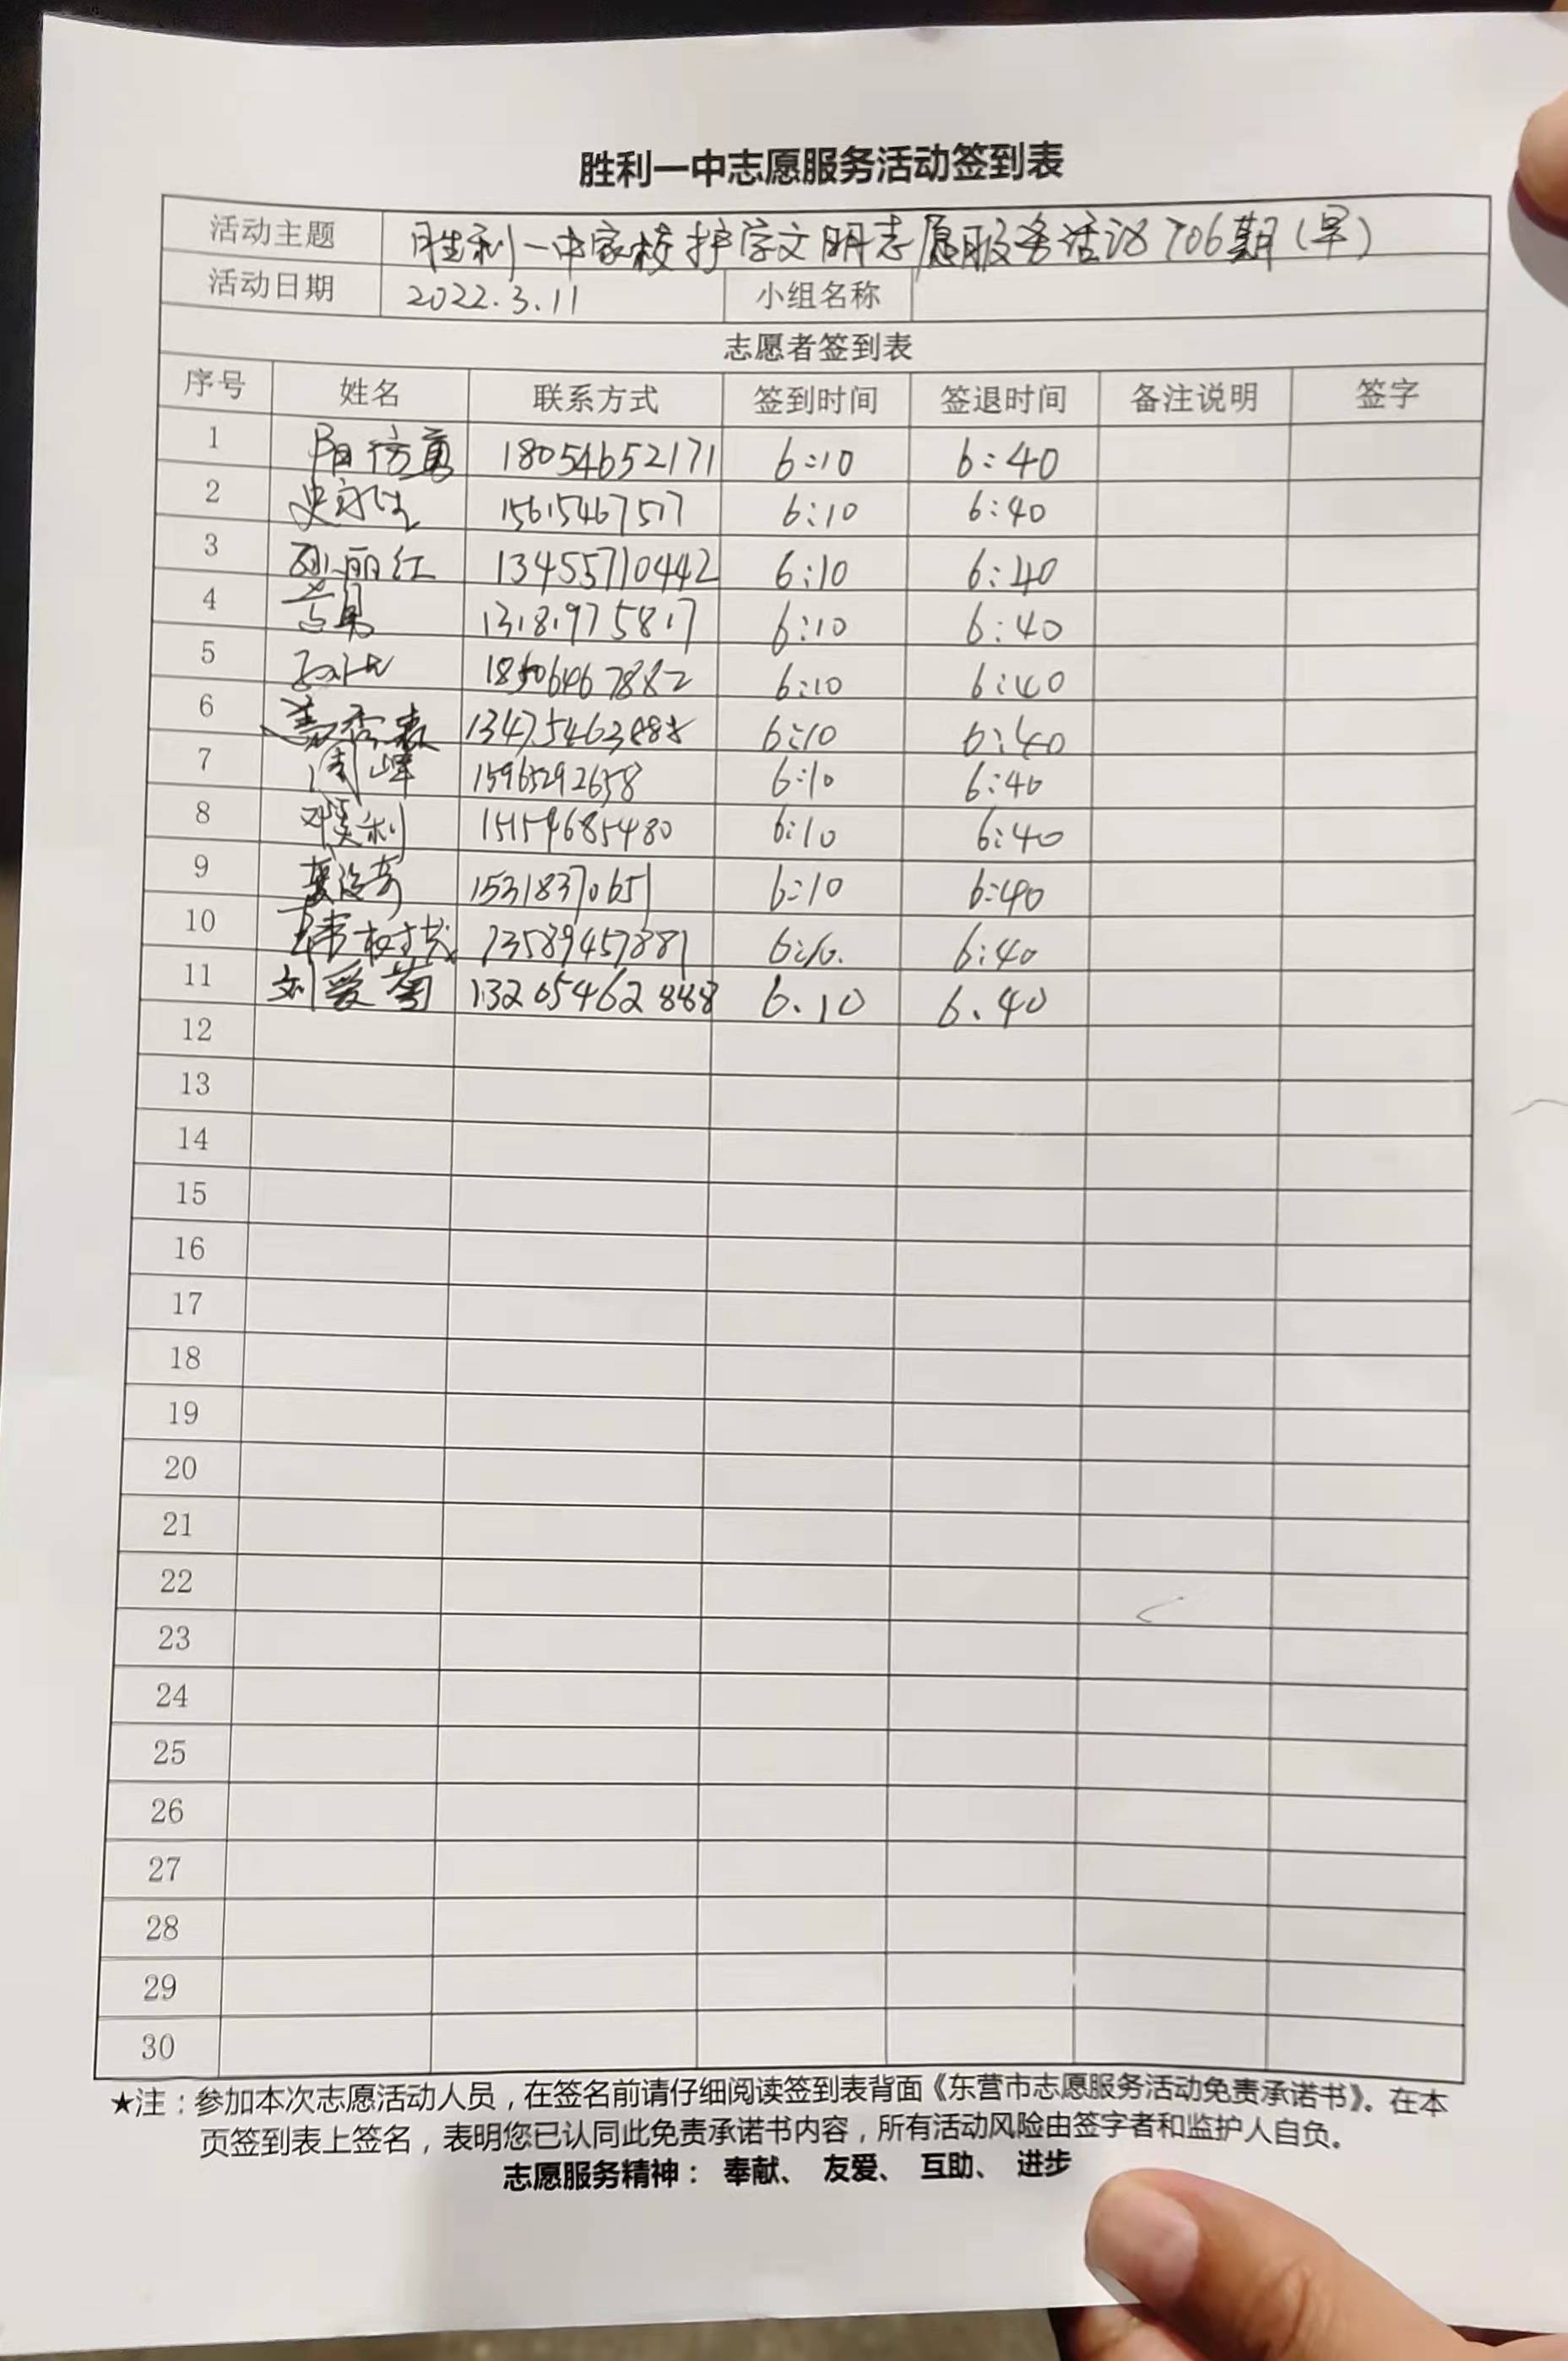 胜利一中志愿服务活动签到表
活动主题 胜利一中家校护学文明志愿服务活动706期(早)
活动日期 2022.3.11 小组名称
志愿者签到表
序号 姓名 联系方式 签到时间 签退时间 备注说明 签字
1 18054652171 6:10 6:40
2 15615467517 6:10 6:40
3 孙丽红 13455710442 6:10 6:40
4 13181975817 6:10 6:40
5 6:10 6:40
6 6:10 6:40
7 周峰 15965292658 6:10 6:40
8 邓美利 15154685480 6:10 6:40
9 15318370651 6:10 6:40
10 13589457881 6:10. 6:40
11 刘爱菊 13205462888 6.10 6.40
12
13
14
15
16
17
18
19
20
21
22
23
24
25
26
27
28
29
30
★注:参加本次志愿活动人员,在签名前请仔细阅读签到表背面《东营市志愿服务活动免责承诺书》。在本
页签到表上签名,表明您已认同此免责承诺书内容,所有活动风险由签字者和监护人自负。
志愿服务精神: 奉献、 友爱、 互助、 进步